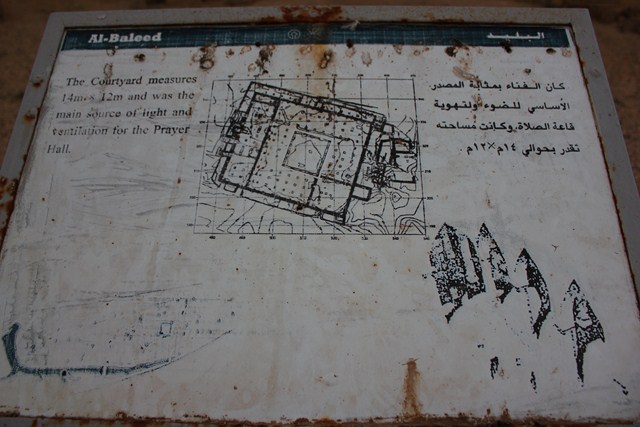 Al-Baleed
البليد
The Courtyard measures
14m × 12m and was the
main source of light and
ventilation for the Prayer
Hall.
كان الفناء بمثابة المصدر
الأساسي للضوء والتهوية
قاعة الصلاة وكانت مساحته
تقدر بحوالي ١٤م×١٢م